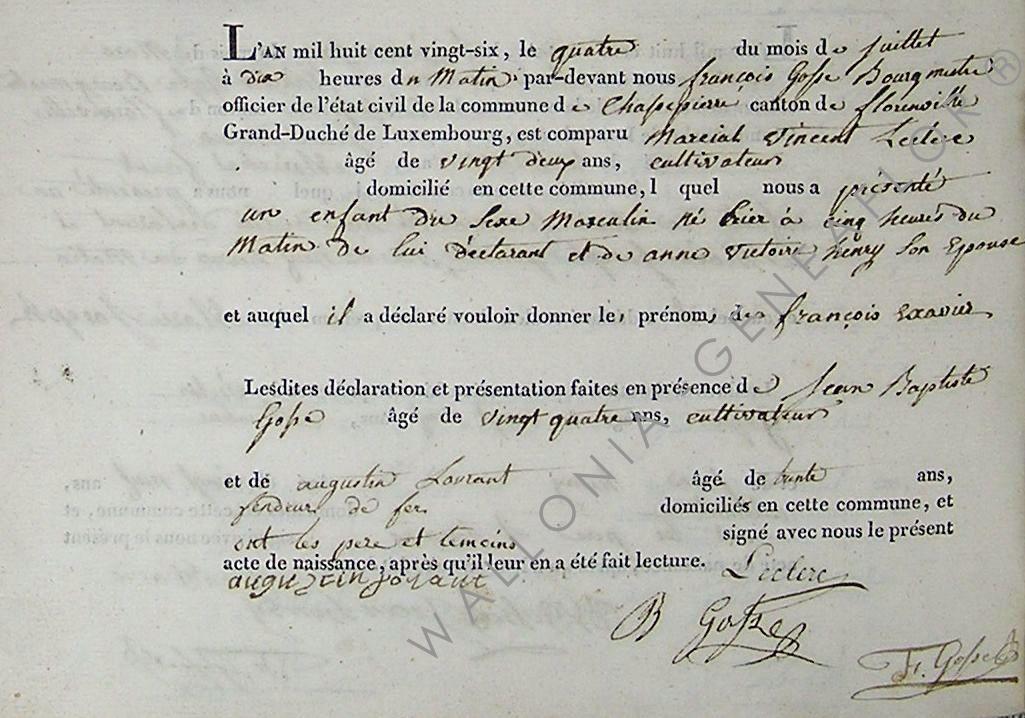 L'AN mil huit cent vingt-six, le quatre du mois de juillet
à dix heures du Matin par-devant nous françois Gosse Bourgmestre
officier de l'état civil de la commune de Chassepierre canton de florenville
Grand-Duché de Luxembourg, est comparu Marcial Vincent Leclerc
âgé de vingt deux ans, cultivateur
domicilié en cette commune, l quel nous a présenté
un enfant du Sexe Masculin né hier à cinq heures du
Matin de lui déclarant et de anne victoire henry Son Epouse
et auquel il a déclaré vouloir donner les prénoms des françois Exavier
Lesdites déclaration et présentation faites en présence de Jean Baptiste
Gosse âgé de vingt quatre ans, cultivateur
et de augustin Lovrant âgé de trente ans,
fendeur de fer domiciliés en cette commune, et
ont les pere et temoins signé avec nous le présent
acte de naissance, après qu'il leur en a été fait lecture. Leclerc
augustin
B Gosse
F. Gosse
WALLONIA GENEALOK®